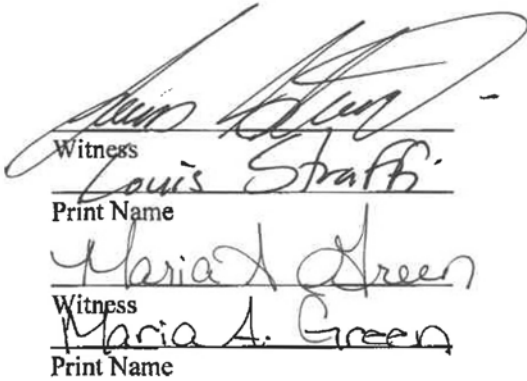 Witness
Louis Straffi
Print Name
Maria A Green
Witness
Maria A. Green
Print Name